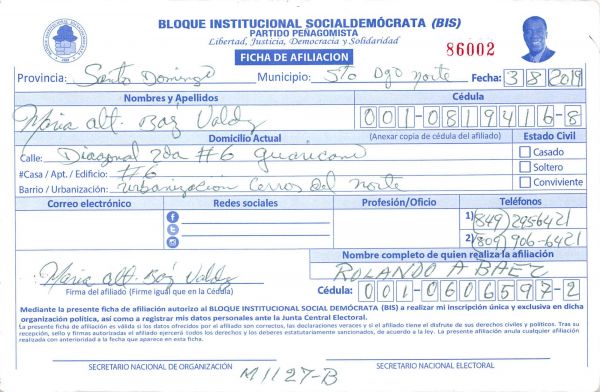 BLOQUE INSTITUCIONAL SOCIALDEMÓCRATA (BIS)
PARTIDO PEÑAGOMISTA
Libertad, Justicia, Democracia y Solidaridad
FICHA DE AFILIACION
86002
Provincia: Santo Domingo Municipio: Sto Dgo Norte Fecha: 3 8 2019
Nombres y Apellidos Cédula
Maria alt. Baez Valdez 001-0819416-8
Domicilio Actual (Anexar copia de cédula del afiliado) Estado Civil
Calle: Diagonal 2da #6 guaricano Casado
#Casa / Apt. / Edificio: #6 Soltero
Barrio / Urbanización: Urbanizacion Cerros del Norte Conviviente
Correo electrónico Redes sociales Profesión/Oficio Teléfonos
1) (849) 295-6421
2) (809) 906-6421
Nombre completo de quien realiza la afiliación
Maria alt. Baez Valdez ROLANDO A BAEZ
Firma del afiliado (Firme igual que en la Cédula) Cédula: 001-0606597-2
Mediante la presente ficha de afiliación autorizo al BLOQUE INSTITUCIONAL SOCIALDEMÓCRATA (BIS) a realizar mi inscripción única y exclusiva en dicha
organización política, así como a registrar mis datos personales ante la Junta Central Electoral.
La presente ficha de afiliación es válida si los datos ofrecidos por el afiliado son correctos, las declaraciones veraces y si el afiliado tiene el disfrute de sus derechos civiles y políticos. Tras su
recepción, sello y firmas autorizadas el afiliado ejercerá todos los derechos y los deberes estatutariamente sancionados, de acuerdo a la ley. La presente afiliación anula cualquier afiliación
realizada con anterioridad a la fecha que aparece en esta ficha.
SECRETARIO NACIONAL DE ORGANIZACIÓN M1127-B SECRETARIO NACIONAL ELECTORAL